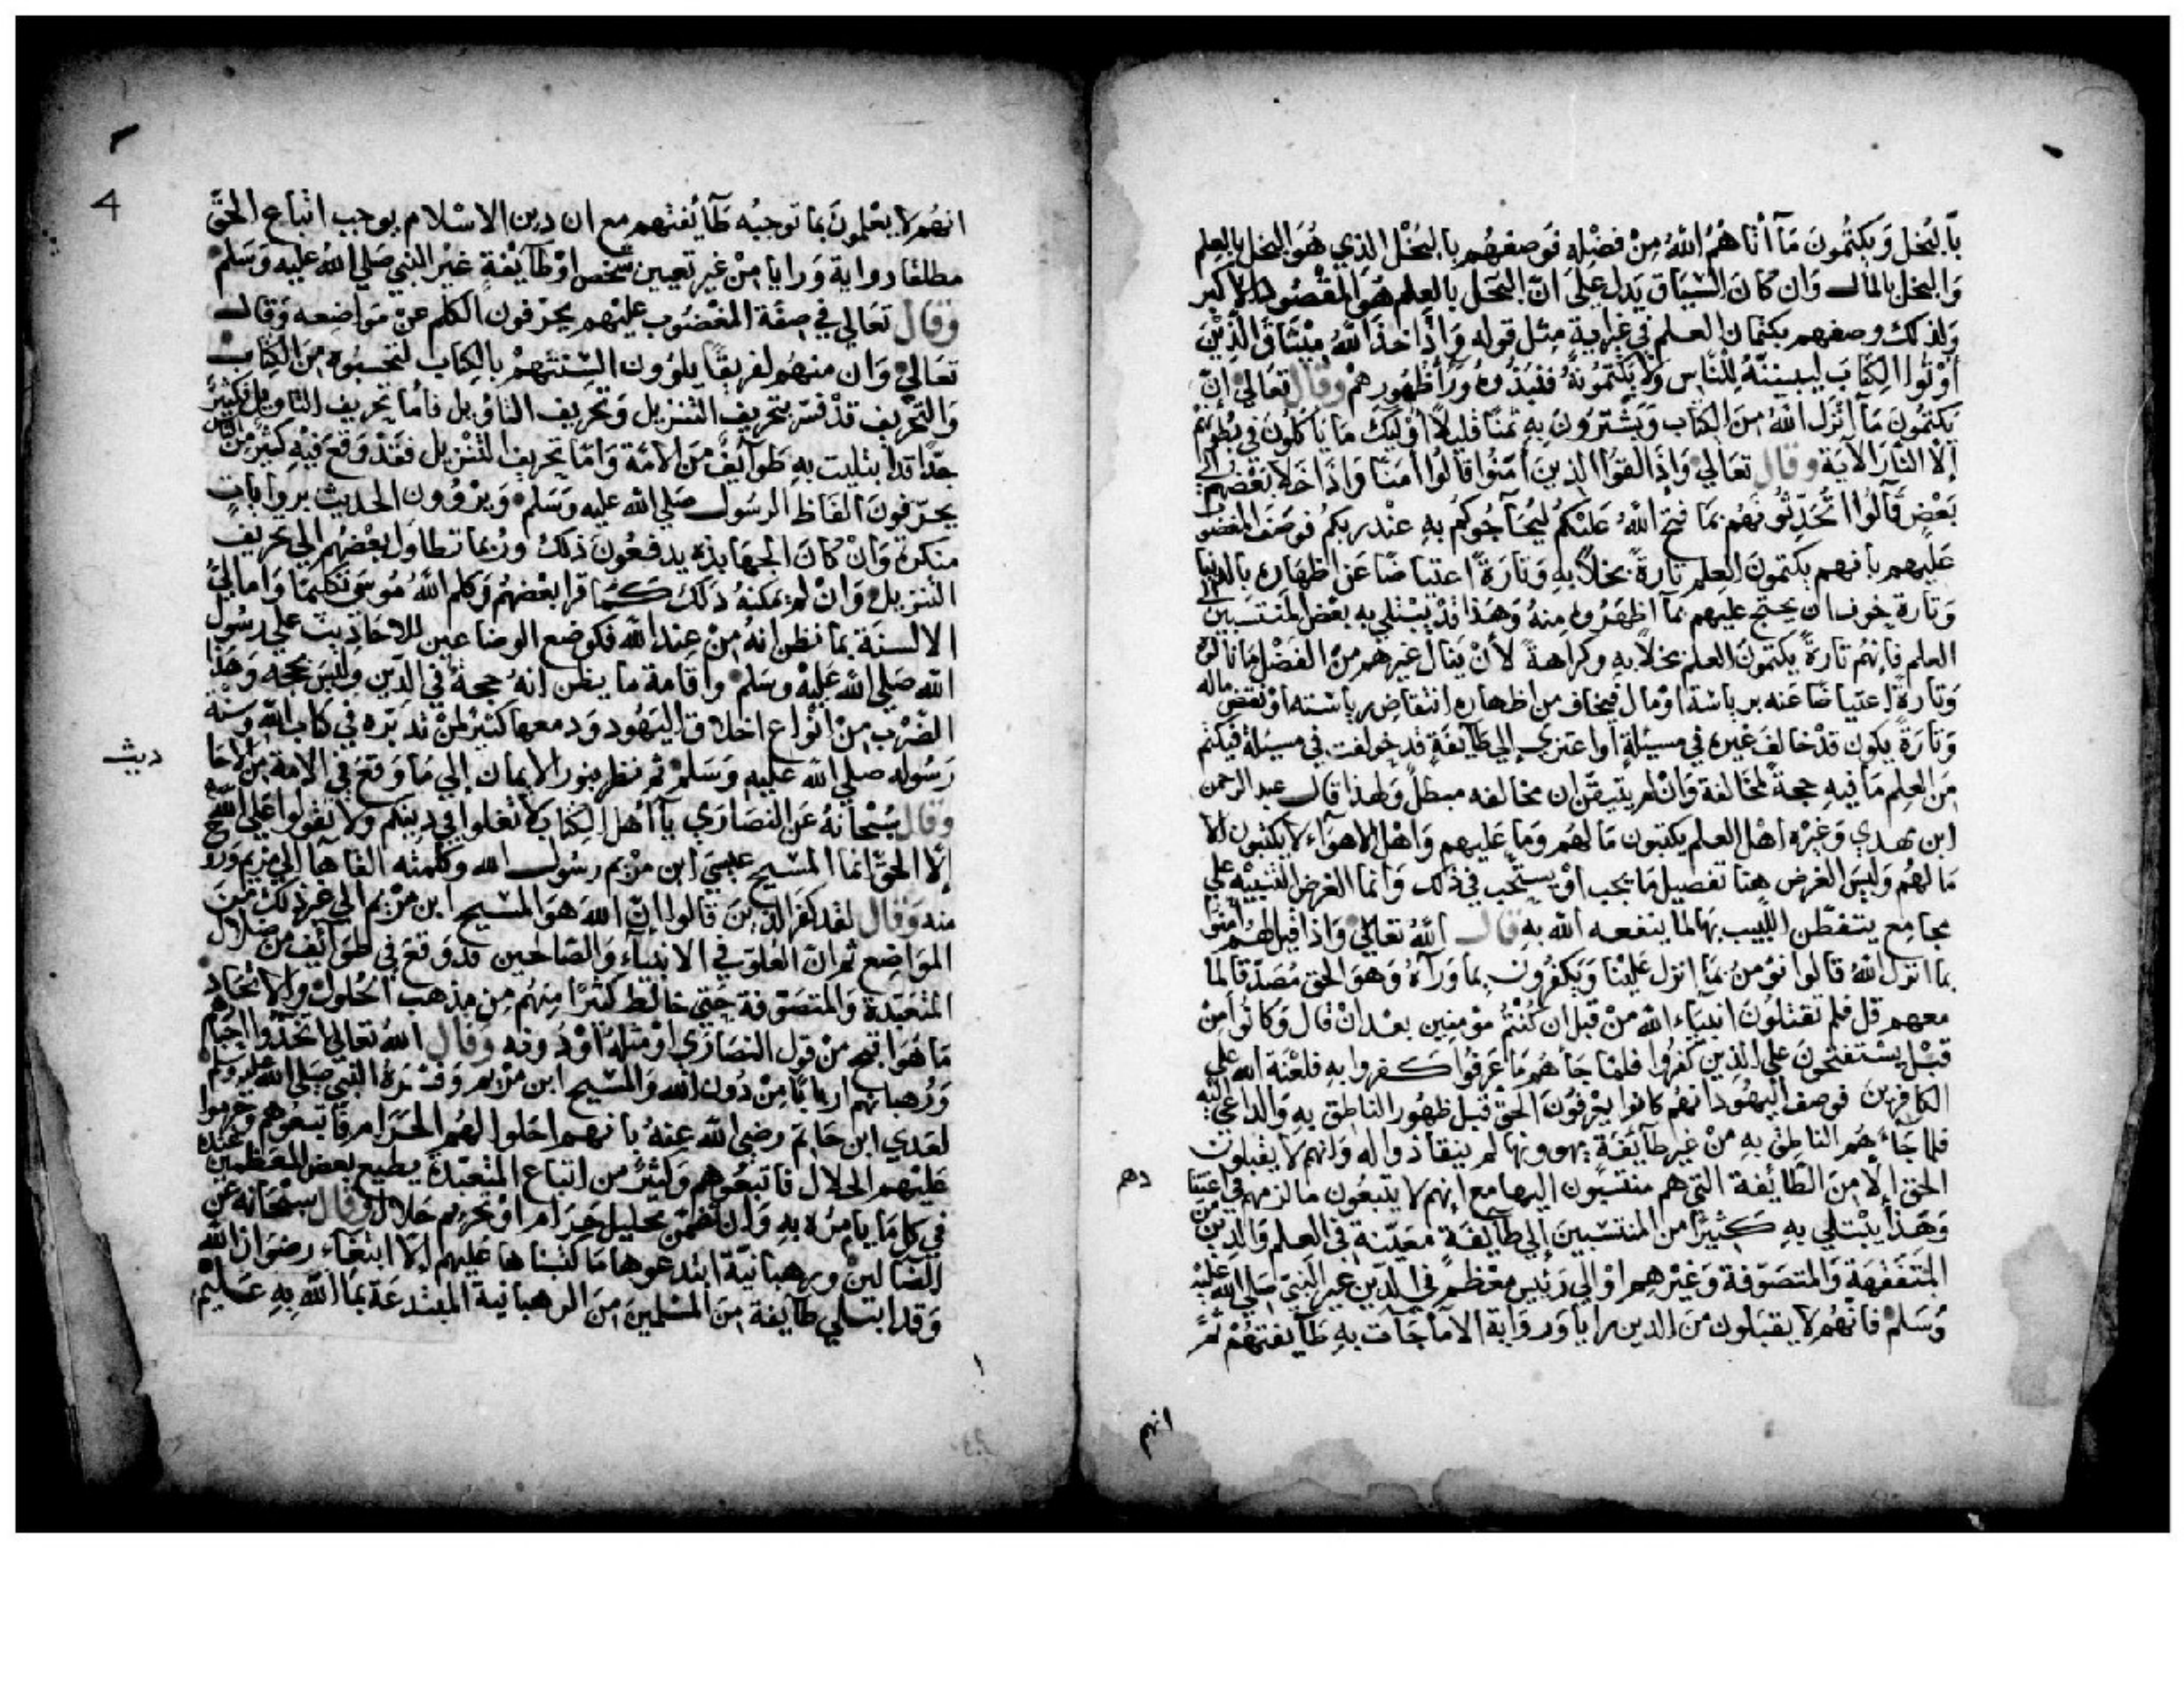 بالبخل ويكتمون ما آتاهم الله من فضله فوصفهم بالبخل الذي هو البخل بالعلم
والبخل بالمال وان كان السياق يدل على ان البخل بالعلم هو المقصود الاكبر
ولذلك وصفهم بكتمان العلم في غير اية مثل قوله واذ اخذ الله ميثاق الذين
اوتوا الكتاب ليبيننه للناس ولا يكتمونه فنبذوه ورآ ظهورهم وقال تعالى ان
يكتمون ما انزل الله من الكتاب ويشترون به ثمنا قليلا اوليك ما ياكلون في بطونهم
الا النار الآية وقال تعالى واذا لقوا الذين امنوا قالوا امنا واذا خلا بعضهم الى
بعض قالوا اتحدثونهم بما فتح الله عليكم ليحآجوكم به عند ربكم فوصف المغضو
عليهم بانهم يكتمون العلم تارة بخلا به وتارة اعتياضا عن اظهاره بالدنيا
وتارة خوف ان يحتج عليهم بما اظهروه منه وهذا قد يبتلى به بعض المنتسبين الى
العلم فانهم تارة يكتمون العلم بخلا به وكراهة لان ينال غيرهم من الفضل ما نالوه
وتارة اعتياضا عنه برياسة او مال فيخاف من اظهاره انتقاص رياسته او نقص ماله
وتارة يكون قد خالف غيره في مسئلة او اعتزى الى طآئفة قد خولفت في مسئلة فيكتم
من العلم ما فيه حجة لمخالفة وان لم يتيقن ان مخالفه مبطل ولهذا قال عبد الرحمن
ابن مهدي وغيره اهل العلم يكتبون ما لهم وما عليهم واهل الاهوآء لا يكتبون الا
ما لهم وليس الغرض هنا تفصيل ما يجب او يستحب في ذلك وانما الغرض التنبيه على
مجامع يتفطن اللبيب بها لما ينفعه الله به قال الله تعالى واذا قيل لهم امنوا
بما انزل الله قالوا نومن بما انزل علينا ويكفرون بما ورآه وهو الحق مصدقا لما
معهم قل فلم تقتلون انبيآء الله من قبل ان كنتم مومنين بعد ان قال وكانوا من
قبل يستفتحون على الذين كفروا فلما جآهم ما عرفوا كفروا به فلعنة الله على
الكافرين فوصف اليهود انهم كانوا يعرفون الحق قبل ظهور الناطق به والداعي اليه
فلما جآءهم الناطق به من غير طآئفة يهوونها لم ينقادوا له وانهم لا يقبلون
الحق الا من الطآئفة التي هم منتسبون اليها مع انهم لا يتبعون ما لزمهم في اعتقا
دهم
وهذا يبتلى به كثيرا من المنتسبين الى طآئفة معينة في العلم والدين من
المتفقهة والمتصوفة وغيرهم او الى رئيس معظم في الدين غير النبي صلى الله عليه
وسلم فانهم لا يقبلون من الدين رايا ورواية الا ما جآت به طآيفتهم ثم
انهم
4
انهم لا يعلمون بما توجبه طآئفتهم مع ان دين الاسلام يوجب اتباع الحق
مطلقا رواية ورايا من غير تعيين شخص او طآئفة غير النبي صلى الله عليه وسلم
وقال تعالى في صفة المغضوب عليهم يحرفون الكلم عن مواضعه وقال
تعالى وان منهم لفريقا يلوون السنتهم بالكتاب لتحسبوه من الكتاب
والتحريف قد فسر بتحريف التنزيل وتحريف التاويل فاما تحريف التاويل فكثير
جدا قد ابتليت به طوآئف من الامة واما تحريف التنزيل فقد وقع فيه كثير من الناس
يحرفون الفاظ الرسول صلى الله عليه وسلم ويروون الحديث بروايات
منكرة وان كان الجهابذه يدفعون ذلك وربما تطاول بعضهم الى تحريف
التنزيل وان لم يمكنه ذلك كما قرا بعضهم وكلم الله موسى تكليما واما لي
الالسنة بما نظن انه من عند الله فكوضع الوضاعين للاحاديث على رسول
الله صلى الله عليه وسلم واقامة ما يظن انه حجة في الدين وليس بحجه وهذا
الضرب من انواع اخلاق اليهود ودمعها كثير لمن تدبره في كتاب الله وسنة
رسوله صلى الله عليه وسلم ثم نظر بنور الايمان الى ما وقع في الامة من الاحا
ديث
وقال سبحانه عن النصارى يآ اهل الكتاب لا تغلوا في دينكم ولا تقولوا على الله
الا الحق انما المسيح عيسى ابن مريم رسول الله وكلمته القاها الى مريم وروح
منه وقال لقد كفر الذين قالوا ان الله هو المسيح ابن مريم الى غير ذلك من
المواضع ثم ان الغلو في الانبيآء والصالحين قد وقع في طوآئف من ضلال
المتعبدة والمتصوفة حتى خالط كثيرا منهم من مذهب الحلول والاتحاد
ما هو اقبح من قول النصارى او مثله او دونه وقال الله تعالى اتخذوا احبارهم
ورهبانهم اربابا من دون الله والمسيح ابن مريم وفسره النبي صلى الله عليه وسلم
لعدي ابن حاتم رضي الله عنه بانهم احلوا لهم الحرام فاتبعوهم وحرموا
عليهم الحلال فاتبعوهم وكثير من اتباع المتعبدة يطيع بعض المعظمين عنده
في كل ما يامره به وان تضمن تحليل حرام او تحريم حلال وقال سبحانه عن
الضالين ورهبانية ابتدعوها ما كتبناها عليهم الا ابتغآء رضوان الله
وقد ابتلي طآيفة من المسلمين من الرهبانية المبتدعة بما الله به عليم